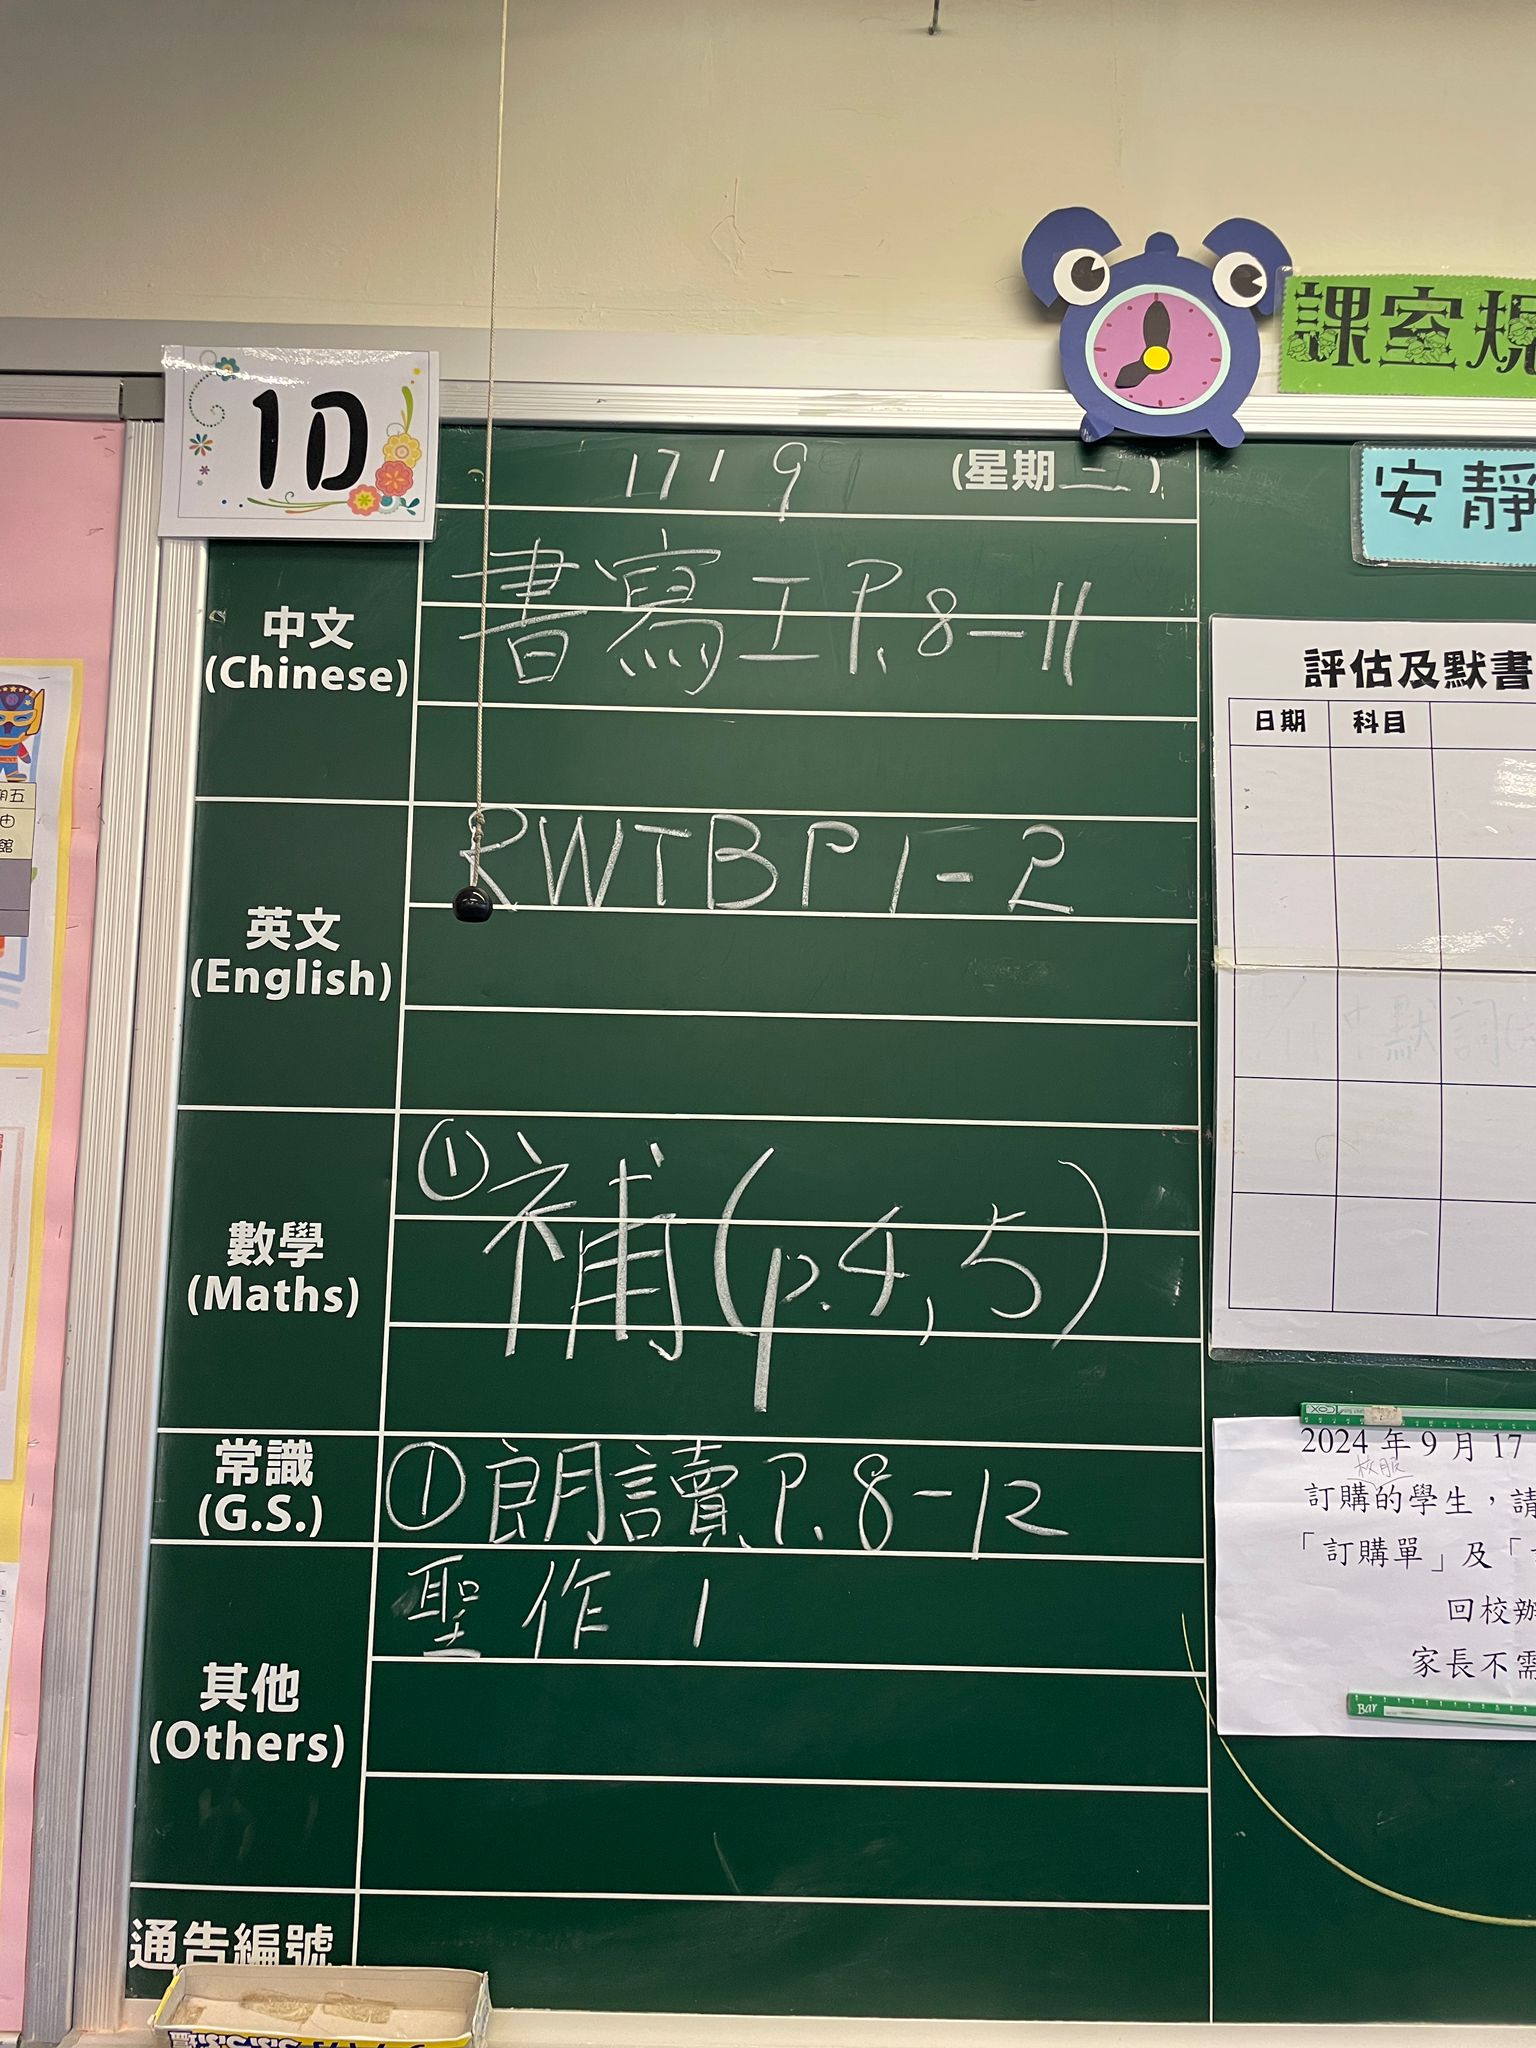 課室規
1D
17/9 (星期二)
安靜
中文
(Chinese)
書寫工P.8-11
評估及默書
日期 科目
英文
(English)
RWTBP1-2
中默詞
數學
(Maths)
①補(p.4,5)
常識
(G.S.)
①朗讀P.8-12
其他
(Others)
聖作1
通告編號
2024年9月17
校服
訂購的學生，請
「訂購單」及「
回校辦
家長不需
Bar
期五
由
館